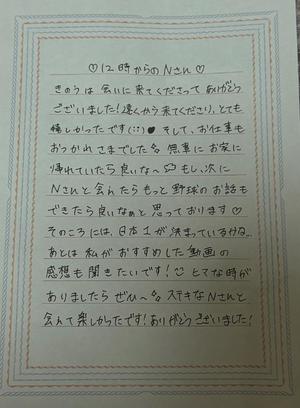 ♡12時からのNさん♡
きのうは会いに来てくださってありがとう
ございました！遠くから来てくださり、とても
嬉しかったです(:3)♥ そして、お仕事も
おつかれさまでした 無事にお家に
帰れていたら良いな〜 もし、次に
Nさんと会えたらもっと野球のお話も
できたら良いなぁと思っております♡
そのころには、日本1が決まっているかな…
あとは私がおすすめした動画の
感想も聞きたいです！ ヒマな時が
ありましたらぜひ〜 ステキなNさんと
会えて楽しかったです！ありがとうございました！